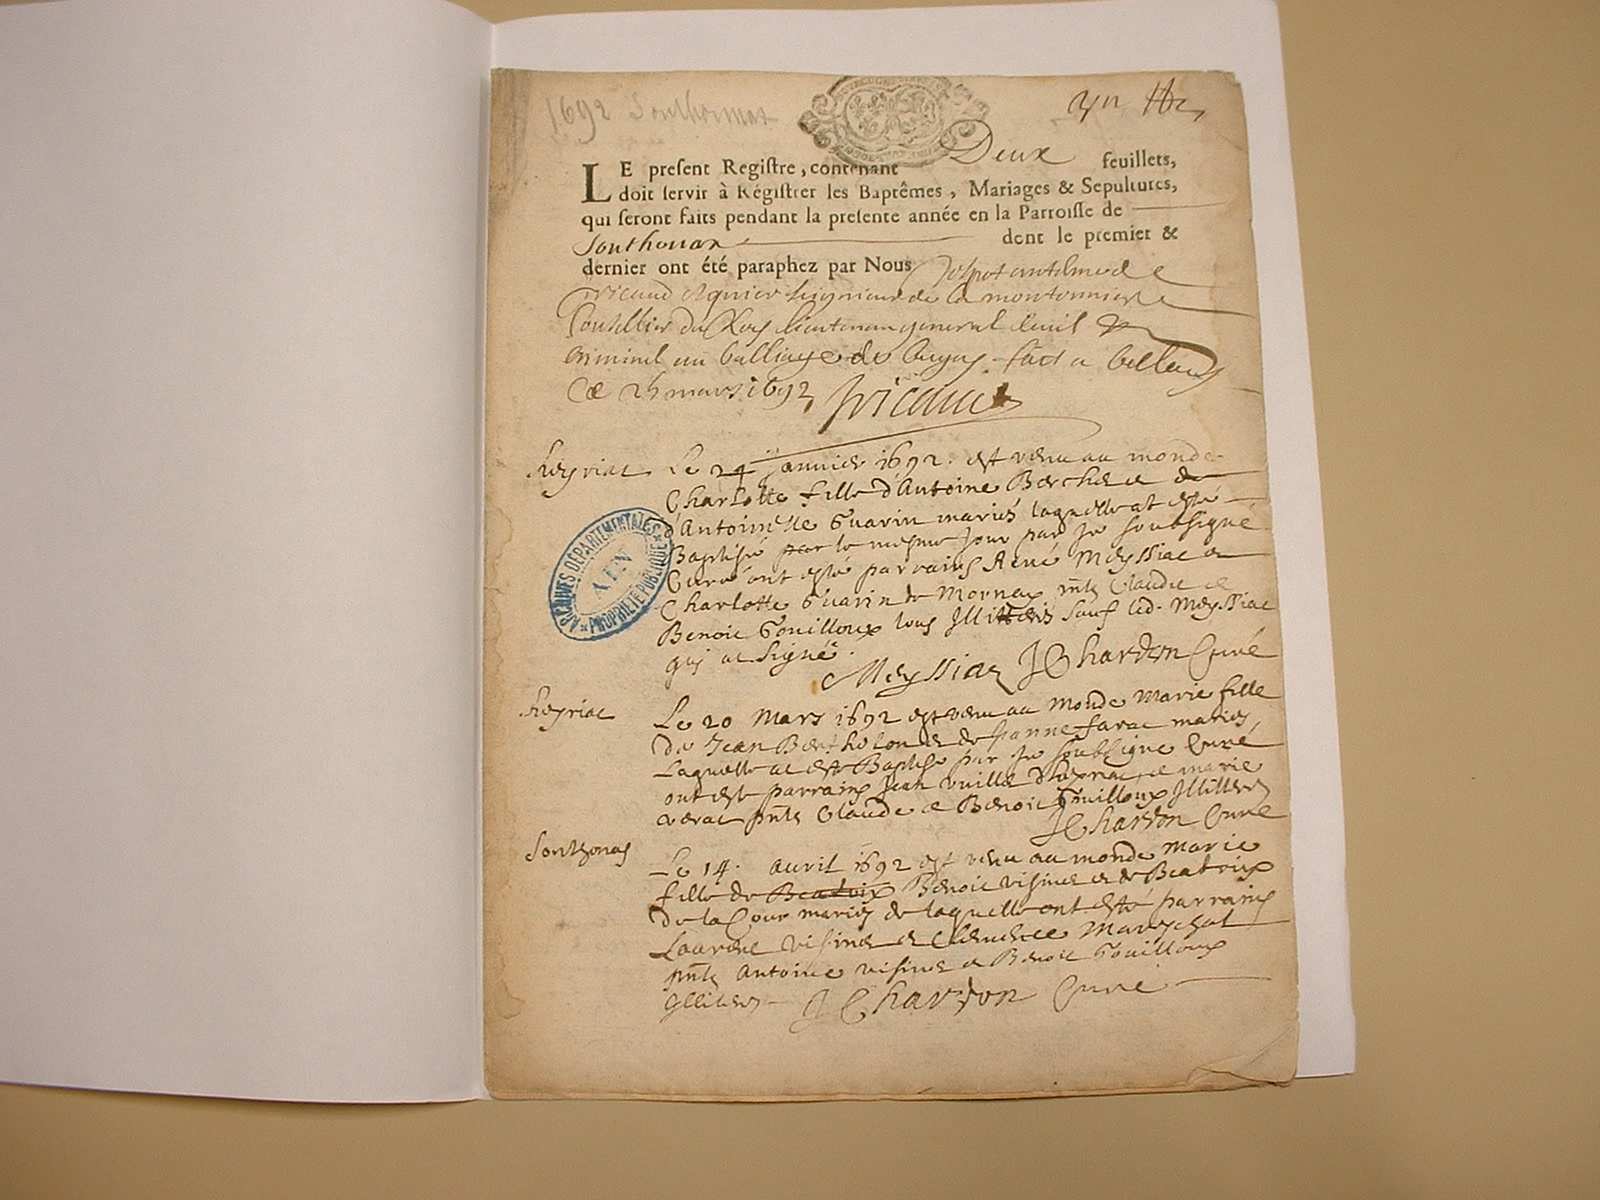 1692 Sonthonnax
Deux
LE present Registre, contenant feuillets,
doit servir à Régistrer les Baptêmes, Mariages & Sepultures,
qui seront faits pendant la presente année en la Parroisse de
Sonthonax dont le premier &
dernier ont été paraphez par Nous
seigneur de la montonniere
Conseillier du Roy lieutenant general Civil &
Criminel au balliage de bugey fait a belley
Ce mars 1692
ARCHIVES DÉPARTEMENTALES
AIN
PROPRIÉTÉ PUBLIQUE
Reyriac Le 24 Janvier 1692. est venu au monde
Charlotte fille d'Antoine Berche et de
d'Antoinette Guarin mariés laquelle at esté
Baptisé par le mesme jour par je soubsigné
Curé ont esté parrains René Meyssiac et
Charlotte Guarin de Mornax Claude et
Benoit Gouilloux tous Illitteres sauf led. Meyssiac
qui at signé.
Meyssiac J Chardon Curé
Reyriac Le 20 Mars 1692 est venu au Monde Marie fille
de Jean Bertholon et de Jeanne Favre mariés,
Laquelle at esté Baptisé par je soubsigné Curé
ont esté parrains Jean et marie
Claude et Benoit Gouilloux Illitteres
J Chardon Curé
Sonthonas Le 14. avril 1692 est venu au monde Marie
fille de Beatrix Benoit et de Beatrix
De la Cour mariés de laquelle ont esté parrains
Laurent et Clemence Mareschal
Antoine et Benoit Gouilloux
J Chardon Curé